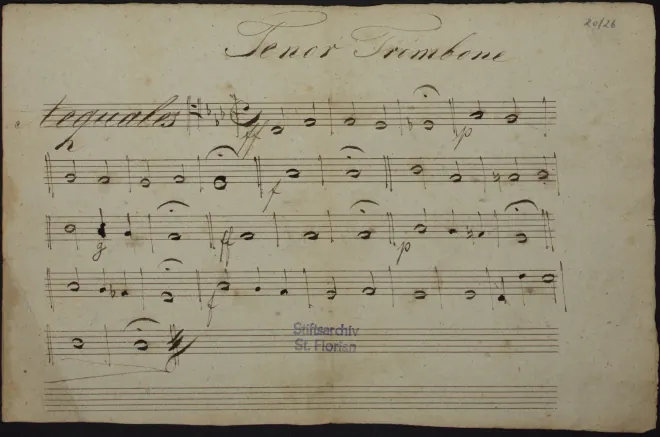 20/26
Tenor Trombone
Aequales
ff
p
f
ff
p
f
Stiftsarchiv
St. Florian